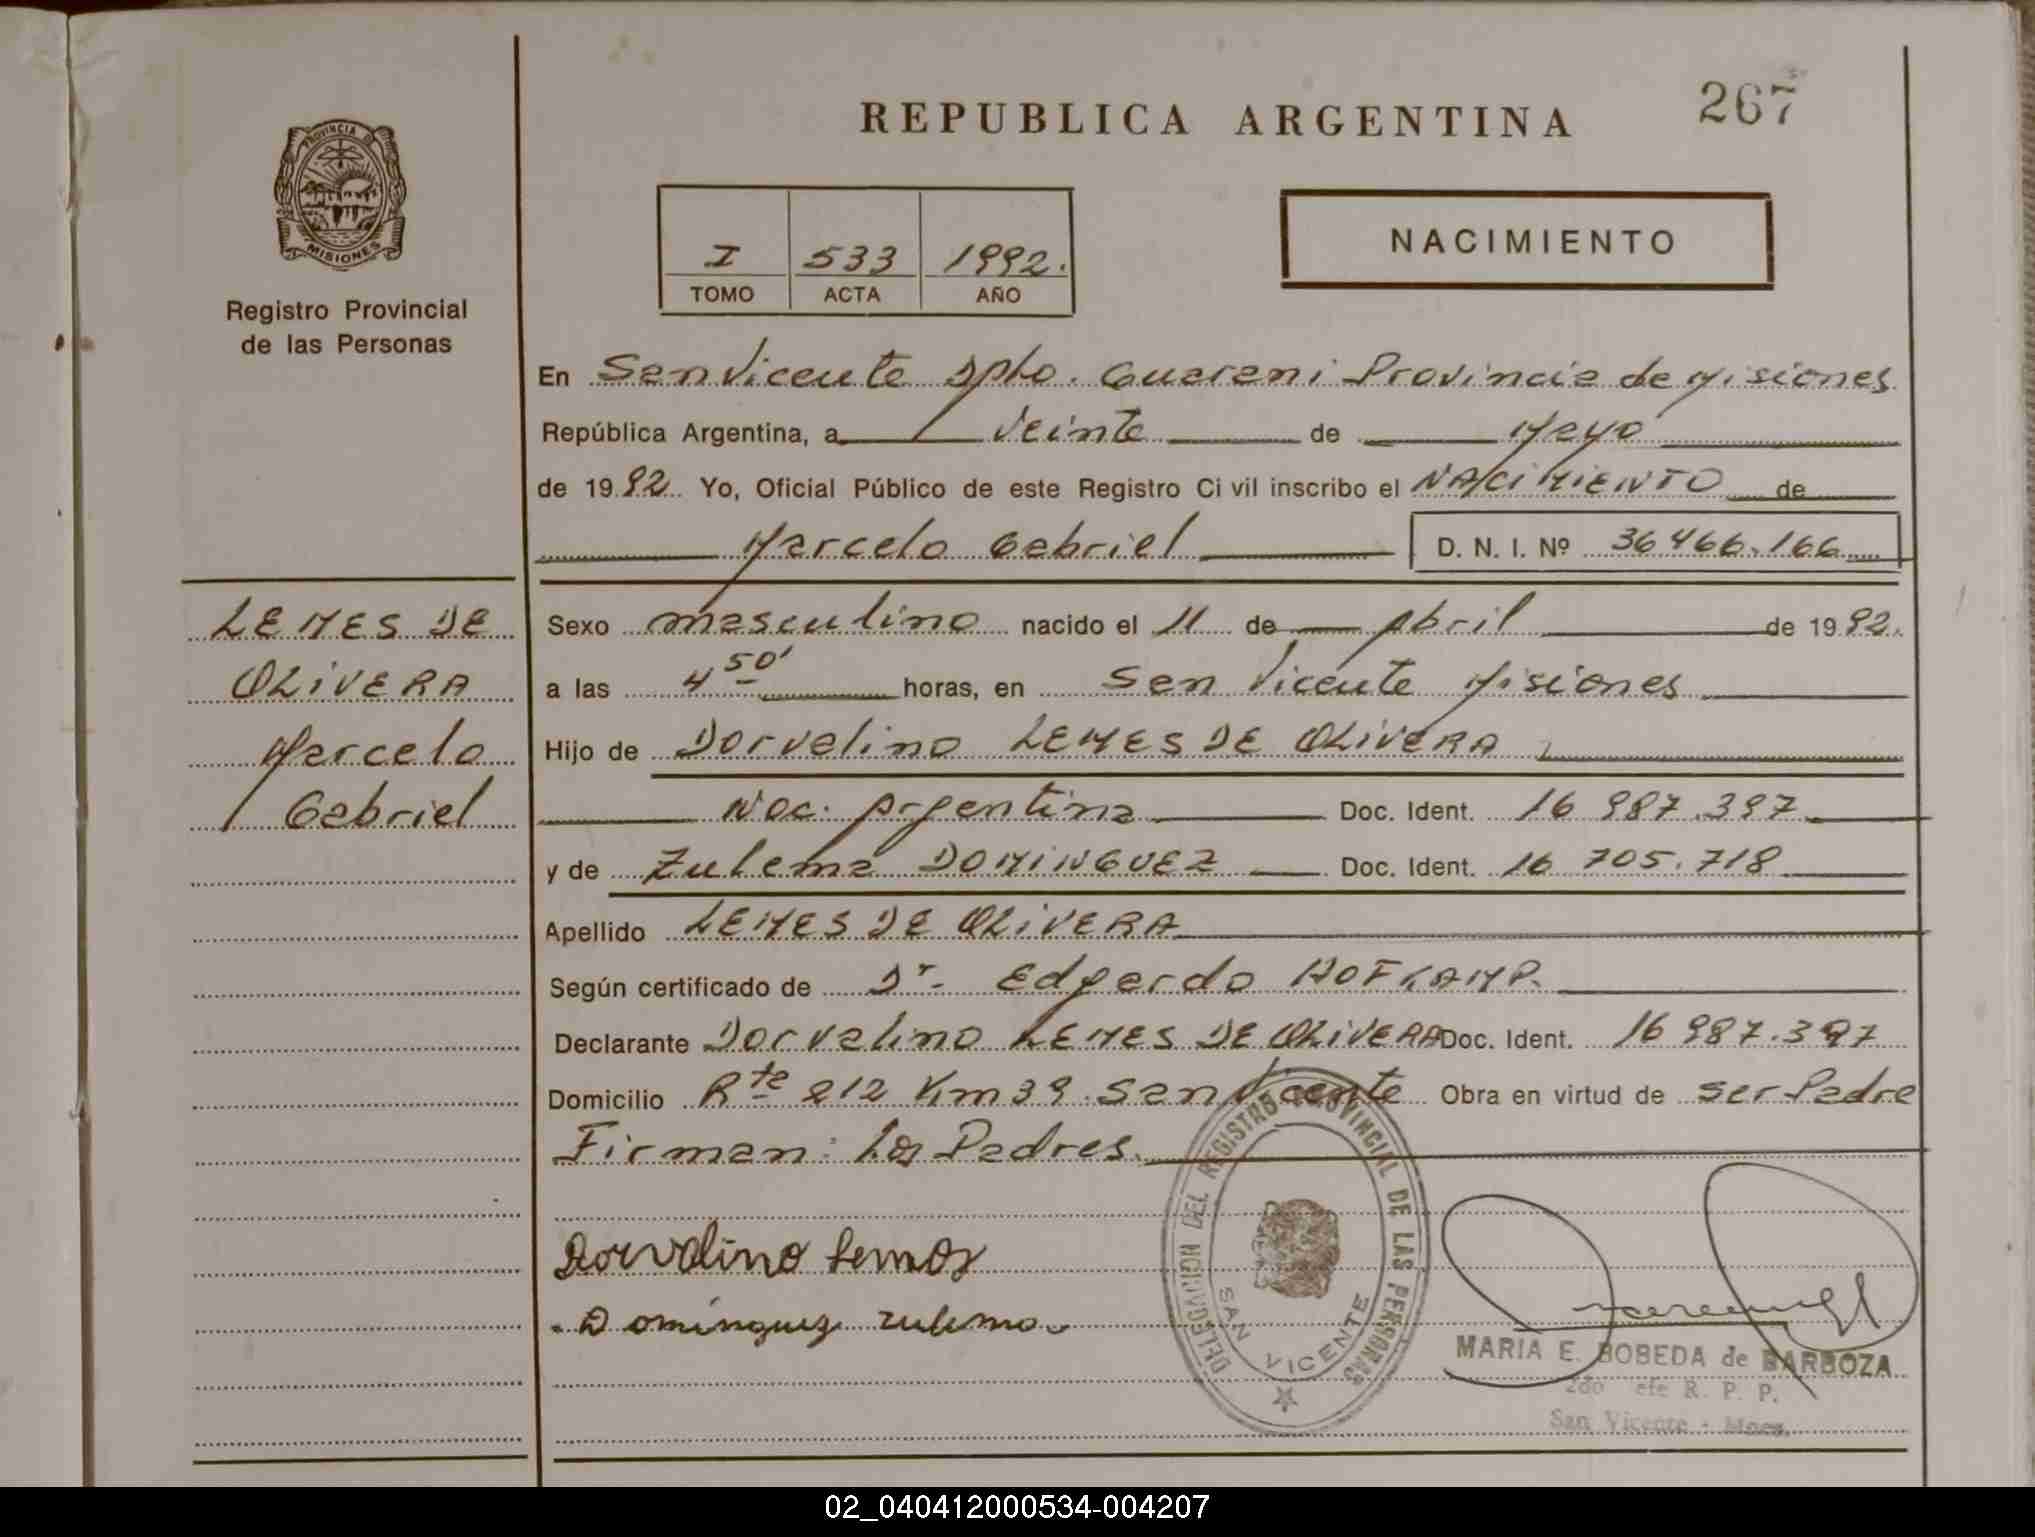 267
REPUBLICA ARGENTINA
PROVINCIA DE MISIONES
Registro Provincial
de las Personas
I 533 1992.
TOMO ACTA AÑO
NACIMIENTO
En San Vicente Dpto. Guarani Provincia de Misiones
República Argentina, a veinte de Mayo
de 1992. Yo, Oficial Público de este Registro Civil inscribo el NACIMIENTO de
Marcelo Gabriel D. N. I. Nº 36 466.166
LEMES DE
OLIVERA
Marcelo
Gabriel
Sexo masculino nacido el 11 de Abril de 1992.
a las 4 50' horas, en San Vicente Misiones
Hijo de Dorvalino LEMES DE OLIVERA
Nac. Argentina Doc. Ident. 16 987.397
y de Zulema DOMINGUEZ Doc. Ident. 16 705.718
Apellido LEMES DE OLIVERA
Según certificado de Dr. Edgardo HOFKAMP.
Declarante Dorvalino LEMES DE OLIVERA Doc. Ident. 16 987.397
Domicilio Rta 212 Km 39. San Vicente Obra en virtud de ser Padre
Firman: Los Padres.
Dorvalino Lemos
Domínguez zulema
DELEGACION DEL REGISTRO PROVINCIAL DE LAS PERSONAS
SAN VICENTE
MARIA E. BOBEDA de BARBOZA
2do Jefe R. P. P.
San Vicente - Mnes.
02_040412000534-004207